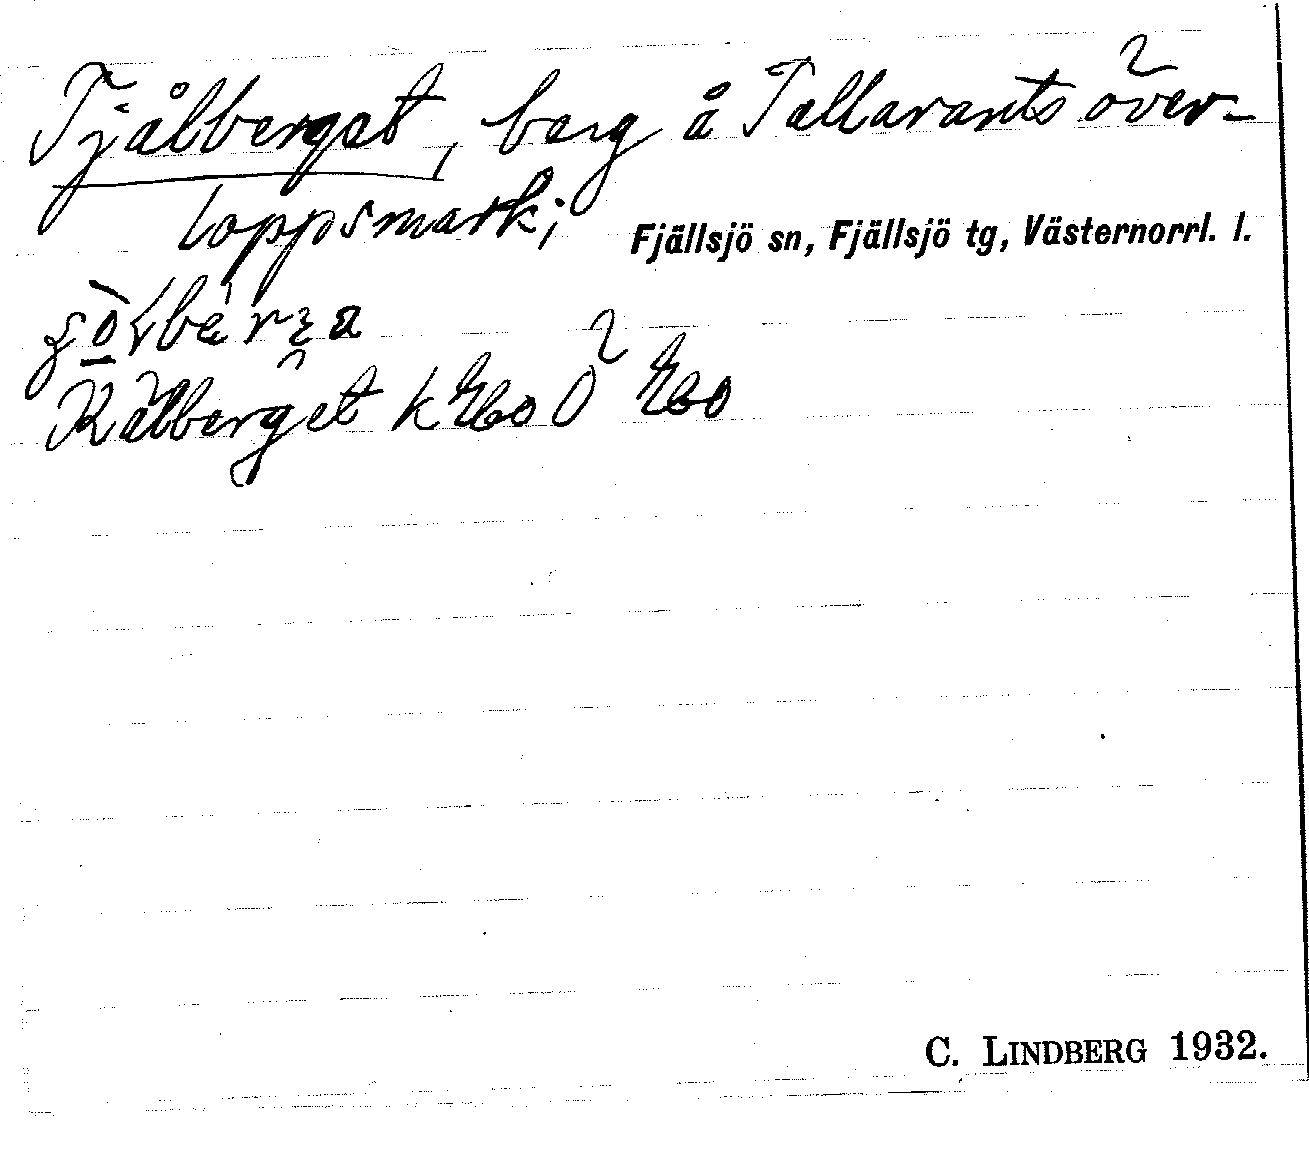 Tjålberget, berg å Tallarants över-
loppsmark;
Fjällsjö sn, Fjällsjö tg, Västernorrl. l.
Kålberget
C. LINDBERG 1932.